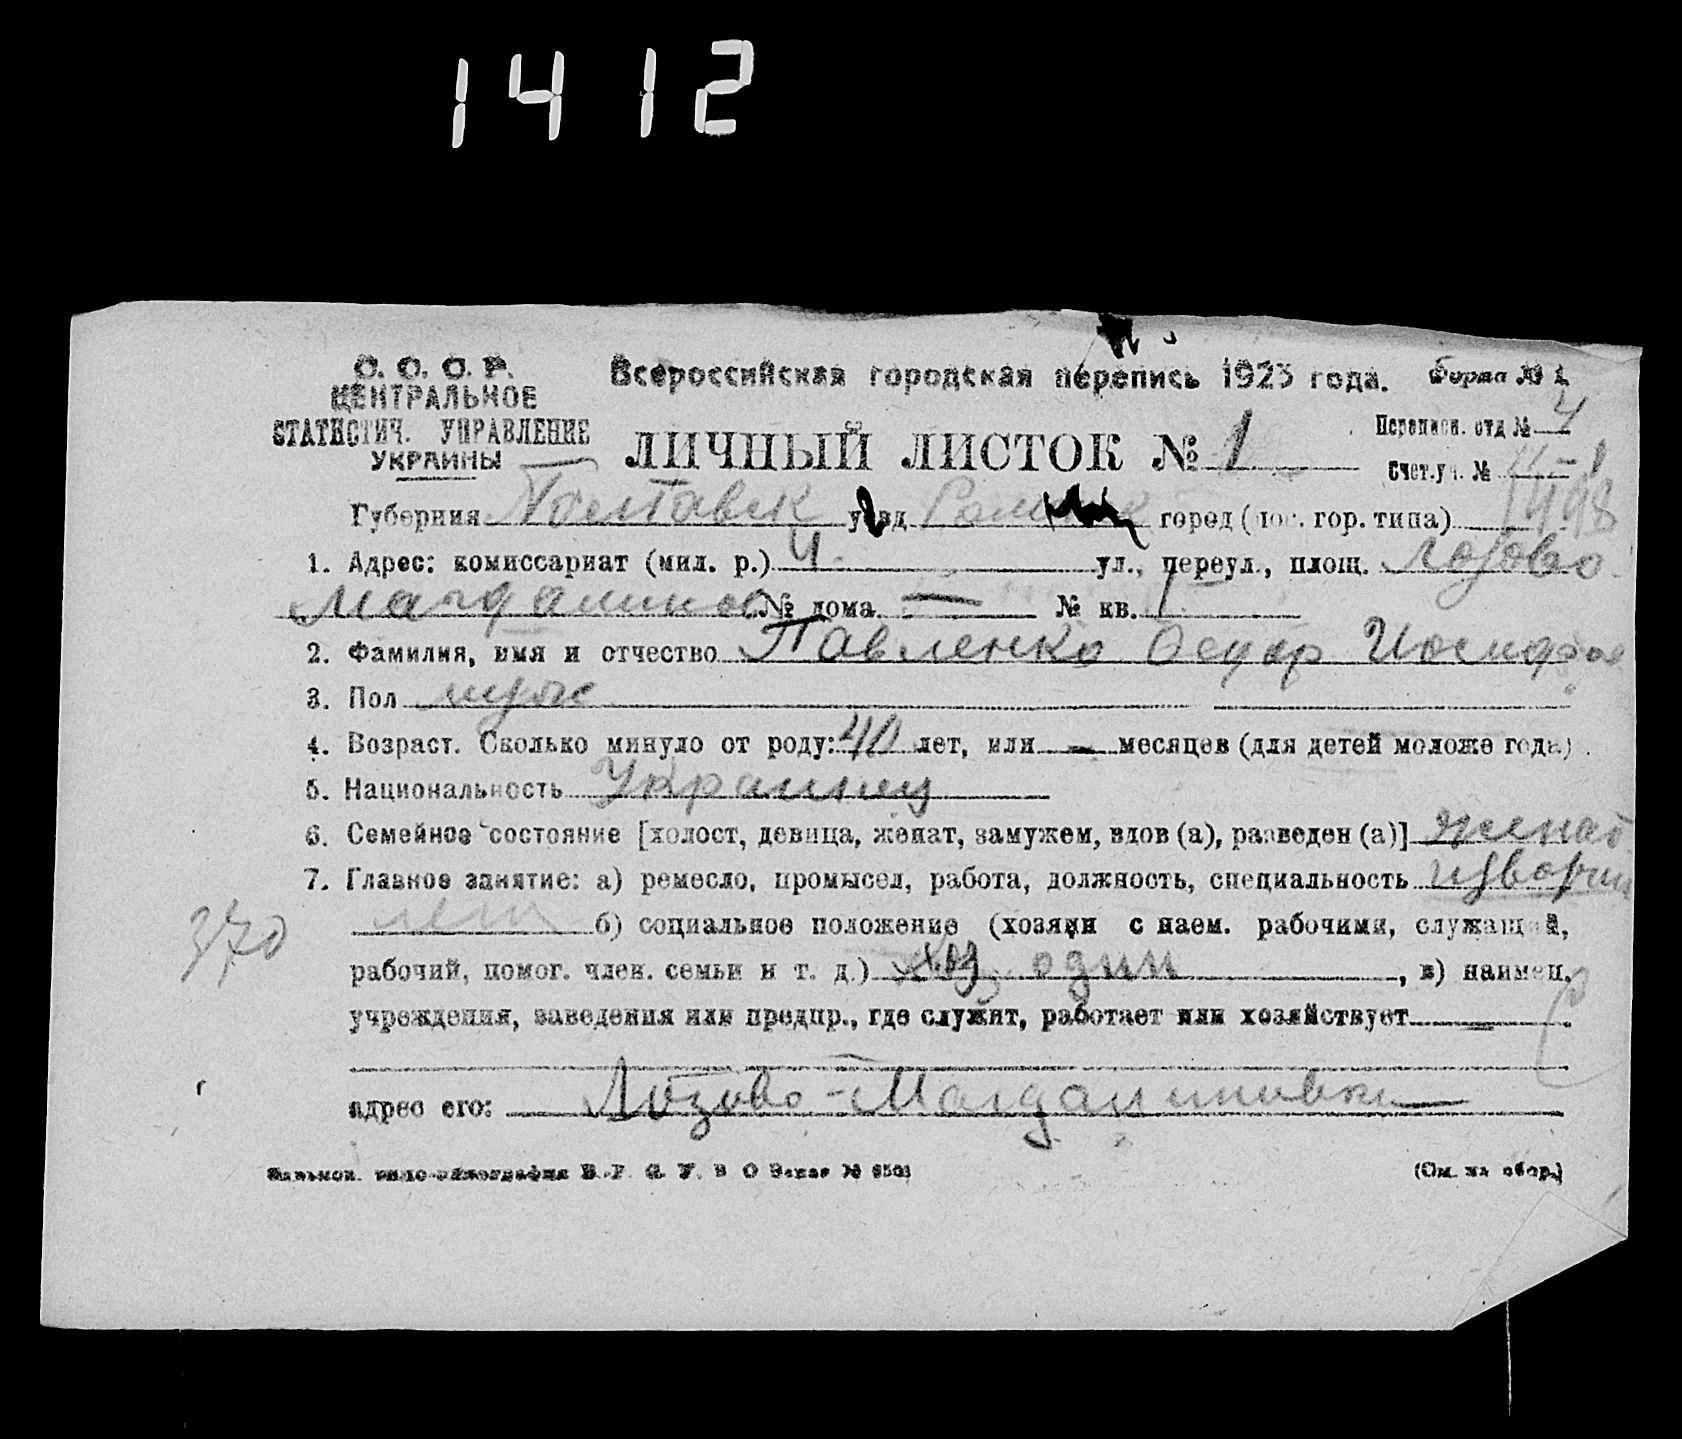 1412
С. С. С. Р.
Всероссийская городская перепись 1923 года. Форма № 1.
ЦЕНТРАЛЬНОЕ
СТАТИСТИЧ. УПРАВЛЕНИЕ
УКРАИНЫ
Переписн. отд № 4
ЛИЧНЫЙ ЛИСТОК № 1
Счет.уч. №
Губерния Полтавск уезд город (пос. гор. типа)
1. Адрес: комиссариат (мил. р.) 4 ул., переул., площ. Лозово
№ дома — № кв. 1
2. Фамилия, имя и отчество Павленко
3. Пол муж
4. Возраст. Сколько минуло от роду: 40 лет, или — месяцев (для детей моложе года)
5. Национальность Украинец
6. Семейное состояние [холост, девица, женат, замужем, вдов (а), разведен (а)] женат
7. Главное занятие: а) ремесло, промысел, работа, должность, специальность
370
б) социальное положение (хозяин с наем. рабочими, служащий,
рабочий, помог. член. семьи и т. д.) хоз. один, в) наимен.
учреждения, заведения или предпр., где служит, работает или хозяйствует —
адрес его: Лозово-
(См. на обор.)